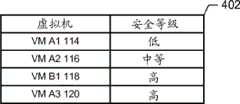 402
虚拟机 安全等级
VM A1 114 低
VM A2 116 中等
VM B1 118 高
VM A3 120 高